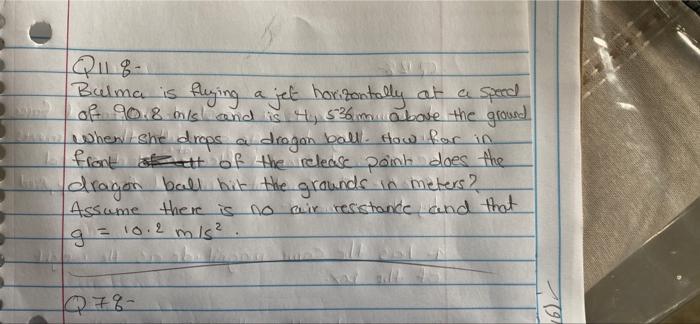 Q11 8-
Bulma is flying a jet horizontally at a speed
of 90.8 m/s and is 4, 536 m above the ground
when she drops a dragon ball. How far in
front of the release point does the
dragon ball hit the grounds in meters?
Assume there is no air resstance and that
g = 10.2 m/s².
Q78-